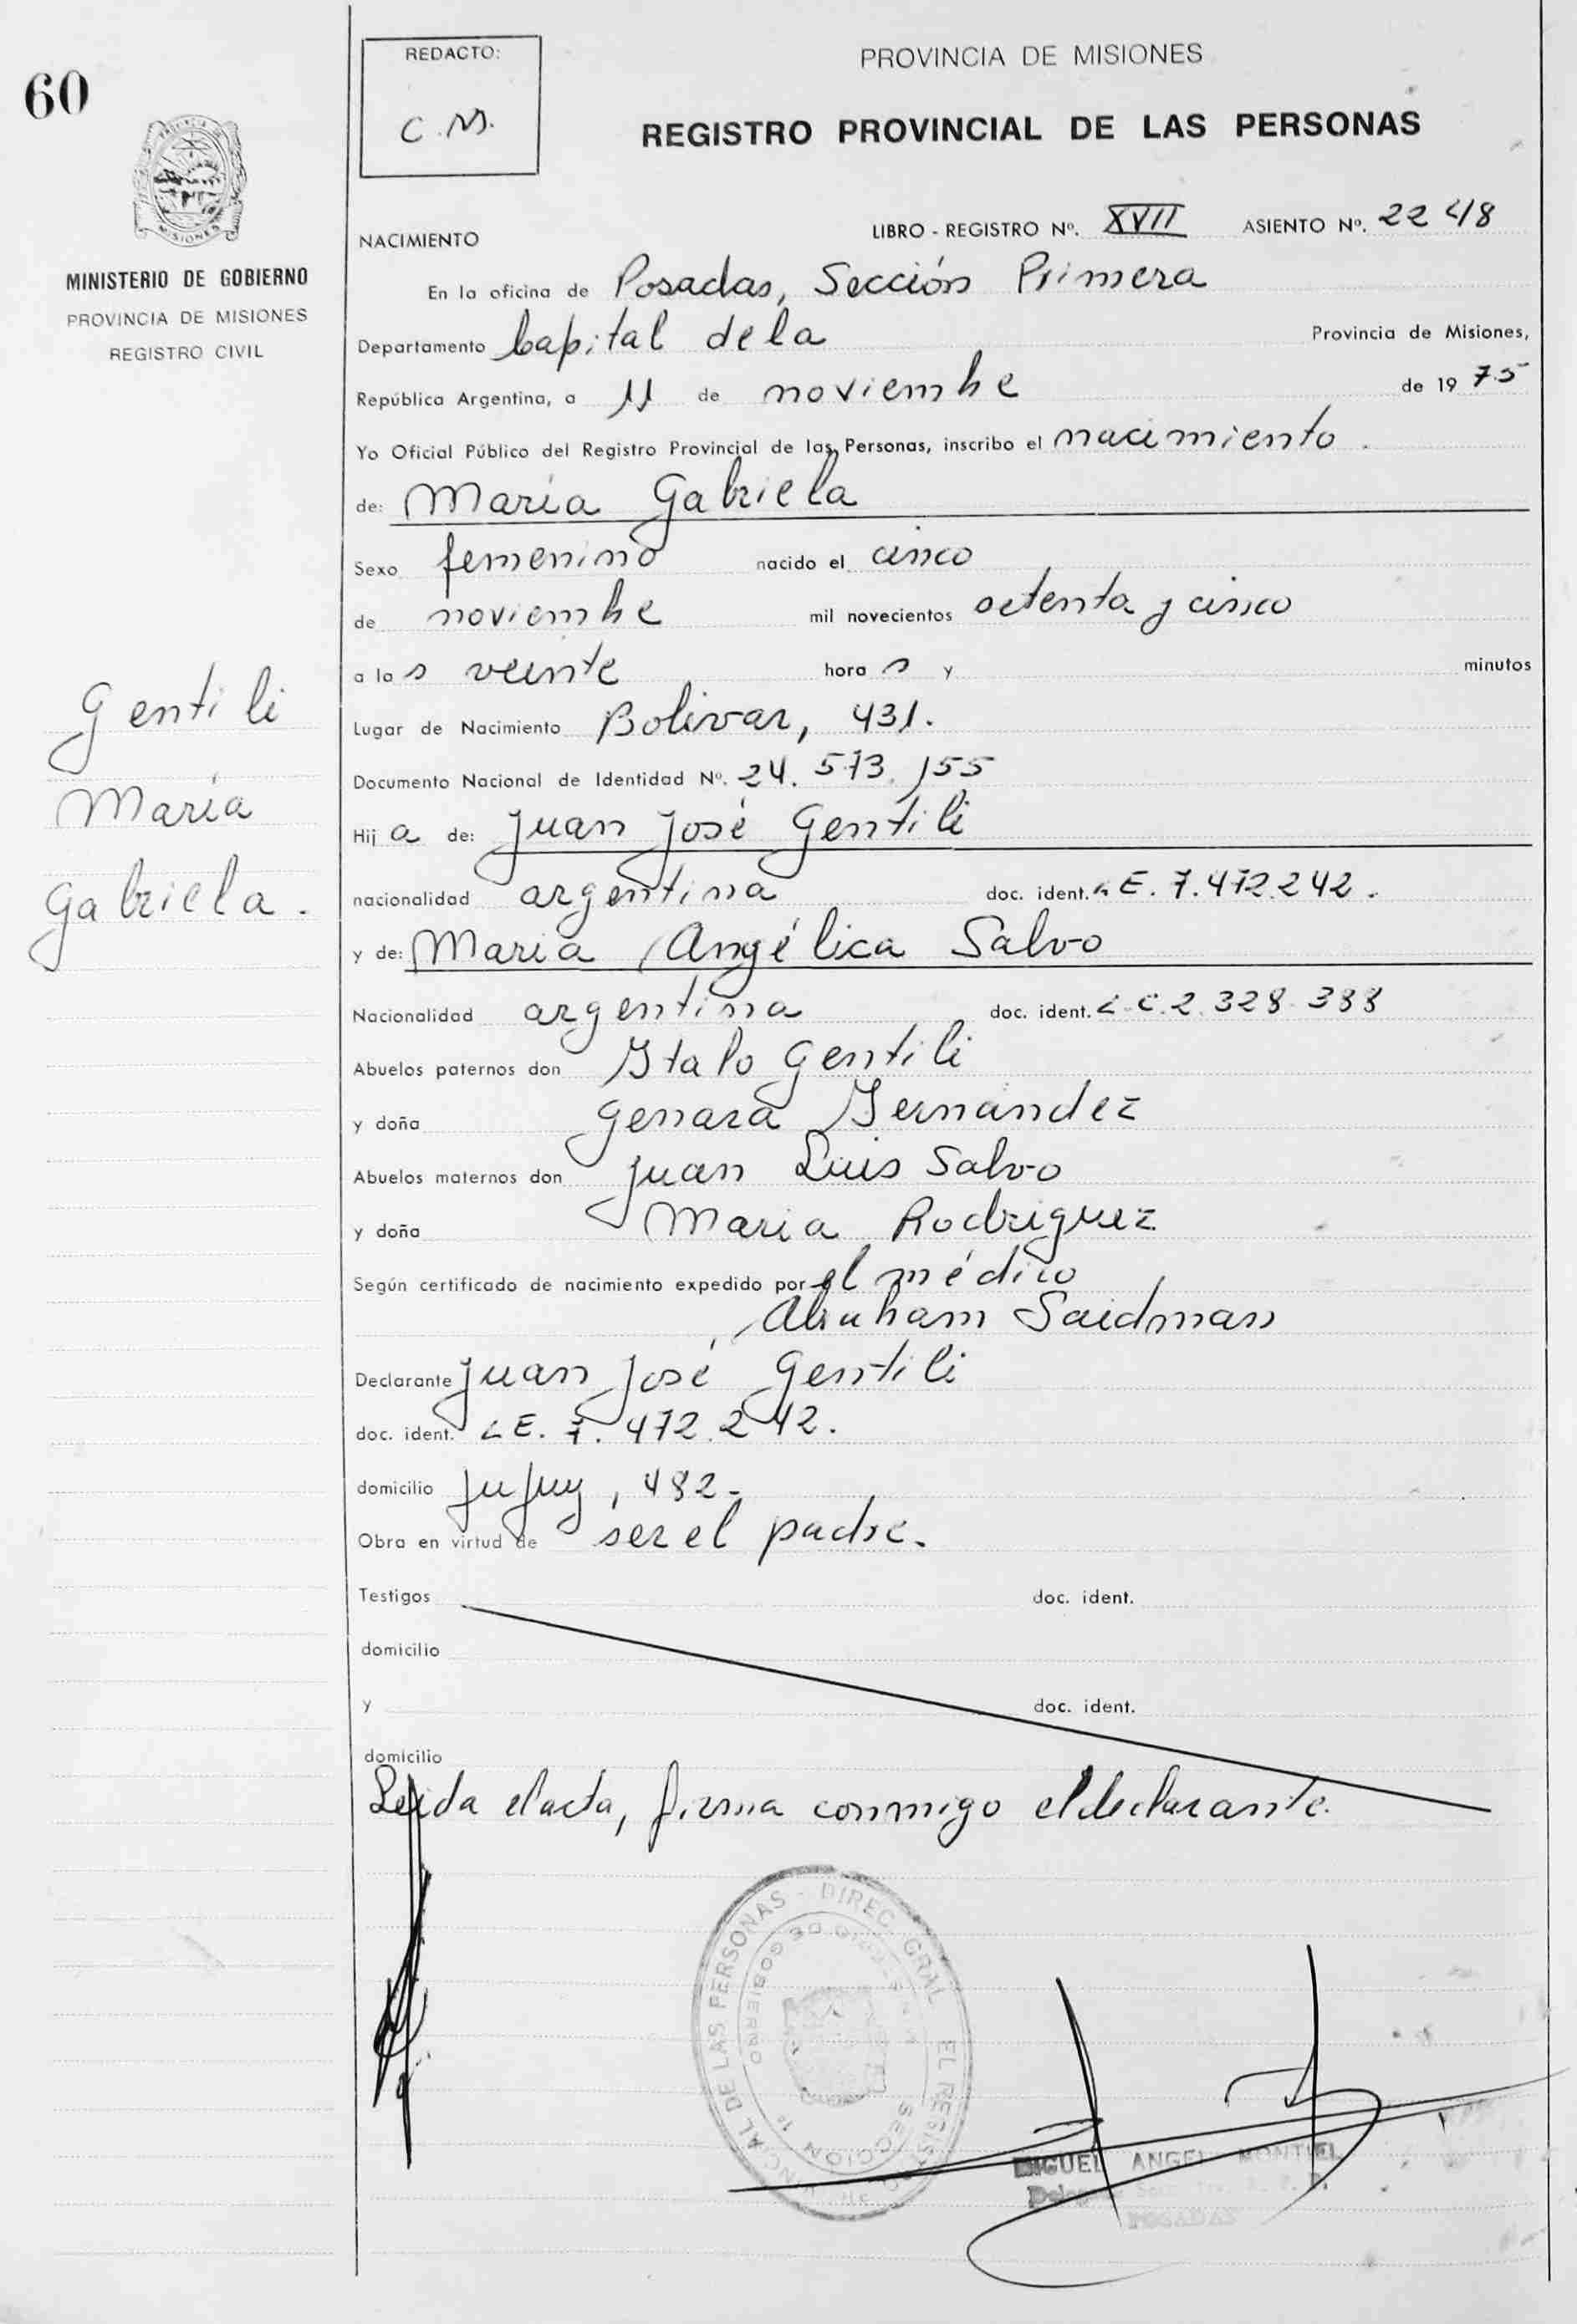 60
REDACTO:
C.M.
PROVINCIA DE MISIONES
REGISTRO PROVINCIAL DE LAS PERSONAS
MINISTERIO DE GOBIERNO
PROVINCIA DE MISIONES
REGISTRO CIVIL
NACIMIENTO
LIBRO - REGISTRO Nº. XVII ASIENTO Nº. 2248
En la oficina de Posadas, Sección Primera
Departamento Capital de la Provincia de Misiones,
República Argentina, a 11 de noviembre de 1975
Yo Oficial Público del Registro Provincial de las Personas, inscribo el nacimiento.
de: María Gabriela
Sexo femenino nacido el cinco
de noviembre mil novecientos setenta y cinco
a las veinte horas y minutos
Lugar de Nacimiento Bolivar, 431.
Documento Nacional de Identidad Nº. 24.573.155
Hija de: Juan José Gentili
nacionalidad argentina doc. ident. L.E. 7.472.242.
y de: María Angélica Salvo
Nacionalidad argentina doc. ident. L.C. 2.328.388
Abuelos paternos don Italo Gentili
y doña Genara Fernández
Abuelos maternos don Juan Luis Salvo
y doña Maria Rodriguez
Según certificado de nacimiento expedido por el médico
Abraham Saidman
Declarante Juan José Gentili
doc. ident. L.E. 7.472.242.
domicilio Jujuy, 482.
Obra en virtud de ser el padre.
Testigos doc. ident.
domicilio
y doc. ident.
domicilio
Leida el acta, firma conmigo el declarante.
Gentili
María
Gabriela.
DIREC. GRAL EL REGISTRO PROVINCIAL DE LAS PERSONAS
MINISTERIO DE GOBIERNO
SECCION 1ª
MIGUEL ANGEL MONTIEL
POSADAS